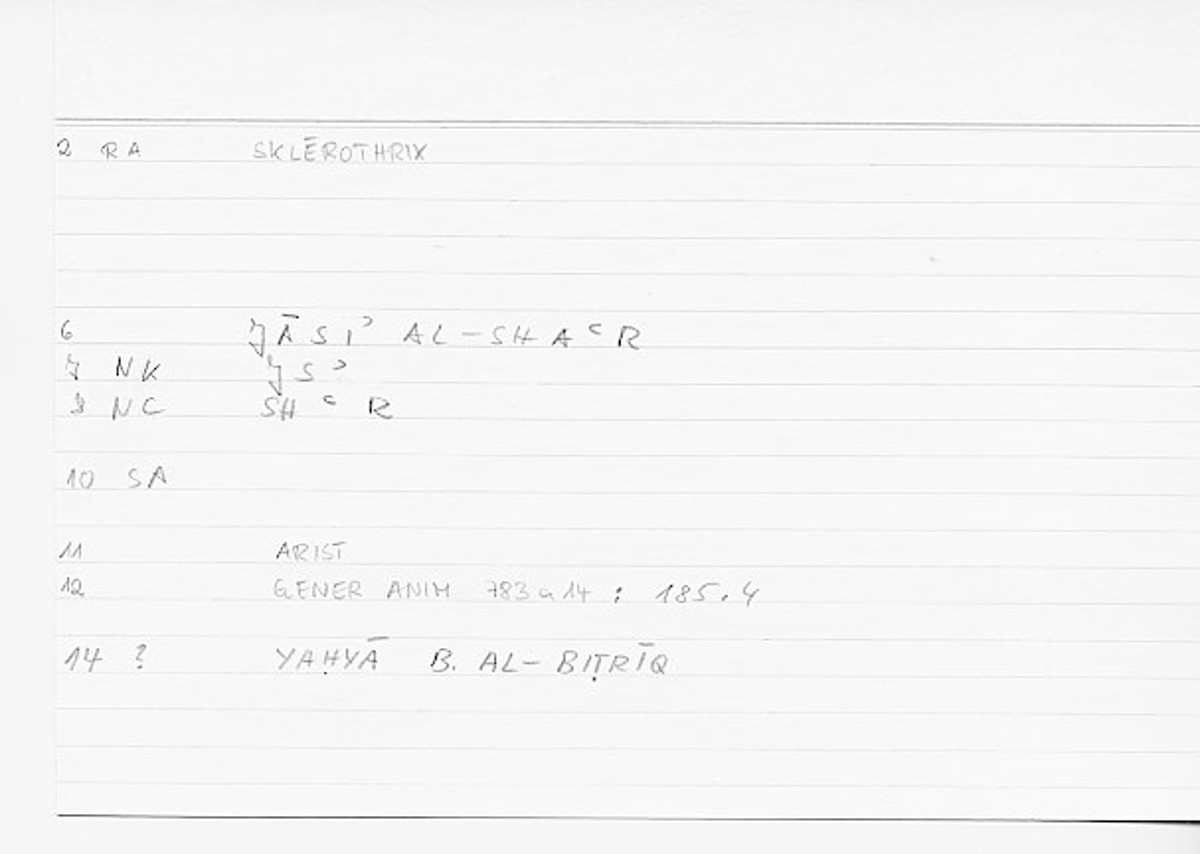 2 RA SKLĒROTHRIX
6 JĀSIʾ AL-SHAʿR
7 NK JSʾ
8 NC SHʿR
10 SA
11 ARIST
12 GENER ANIM 783a14 : 185.4
14 ? YAḤYĀ B. AL-BIṬRĪQ